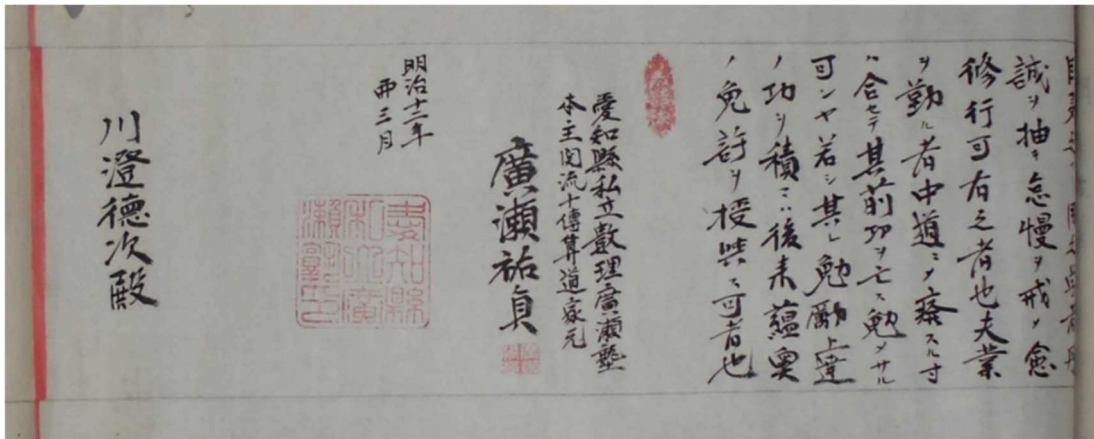 誠ヲ抽キ怠慢ヲ戒メ愈
修行可有之者也夫業
ヲ勤ル者中道ニメ癈スル寸
ハ合セテ其前功ヲ亡ス勉メサル
可ンヤ若シ其レ勉勵上達
ノ功ヲ積ニハ後来蘊奥
ノ免許ヲ授與ス可者也
愛知縣私立數理廣瀬塾
本主関流十傳算道家元
廣瀬祐貞
明治十二年
三月
川澄德次殿